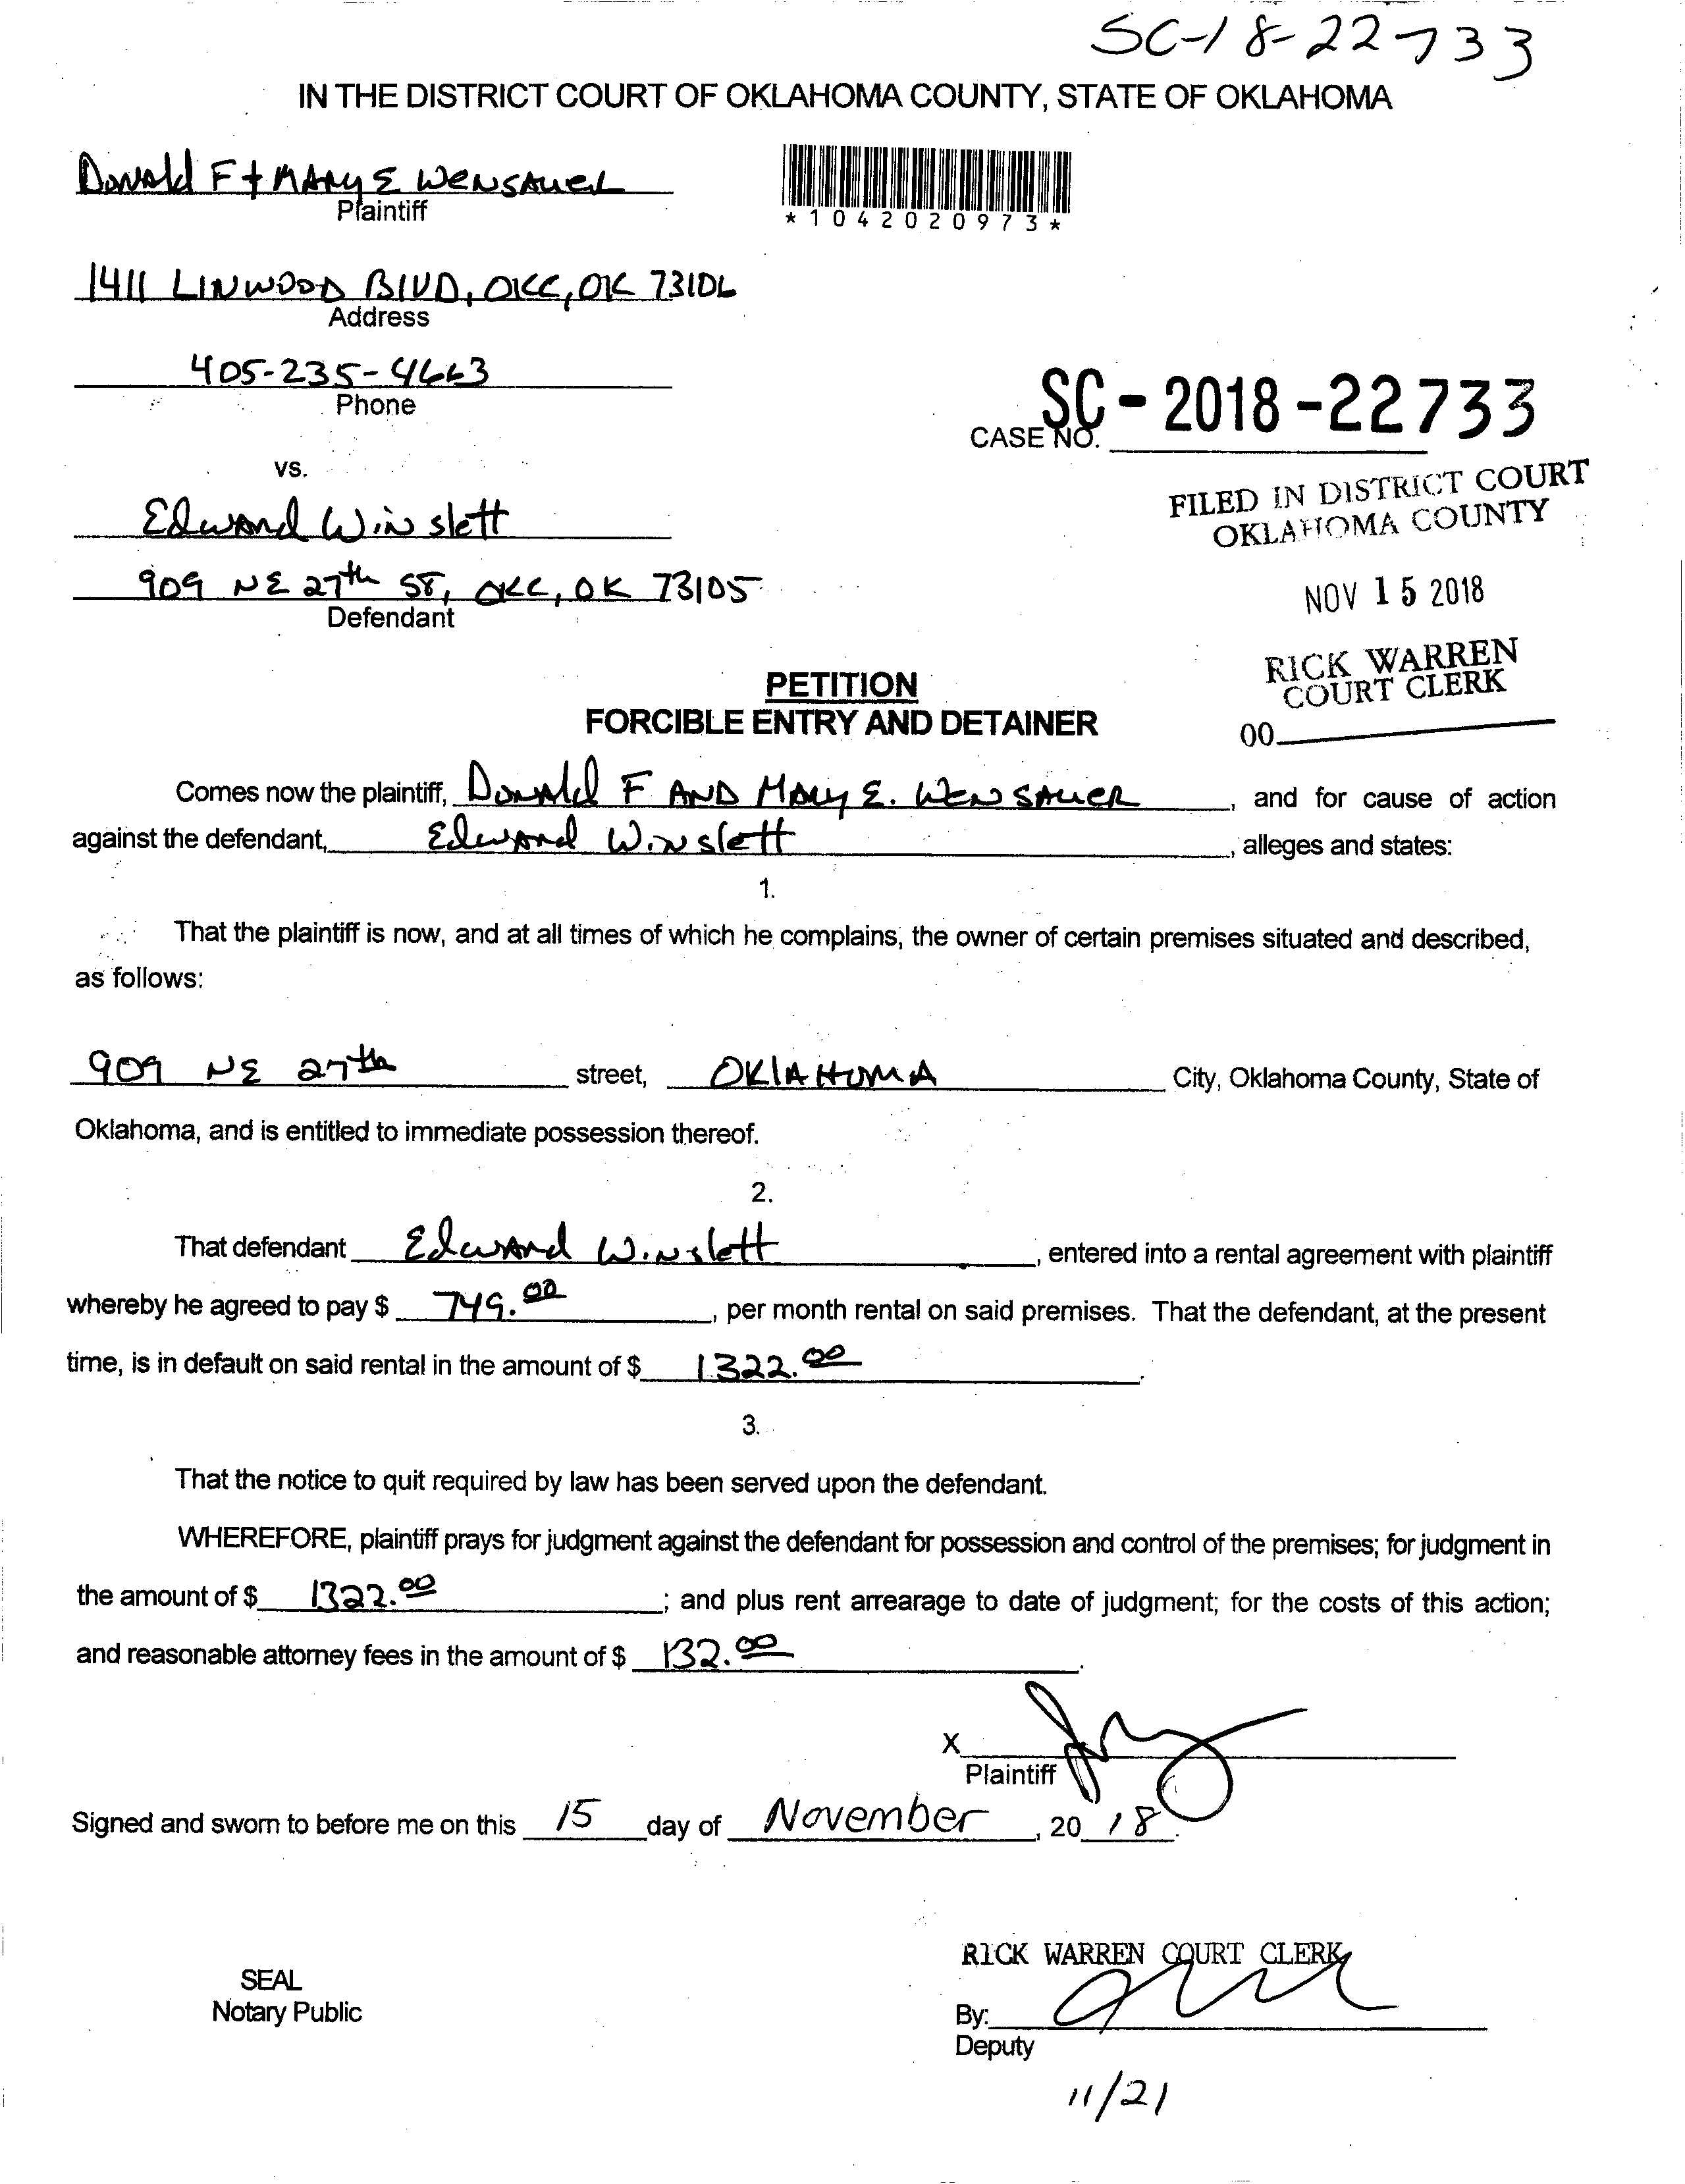 SC-18-22733
IN THE DISTRICT COURT OF OKLAHOMA COUNTY, STATE OF OKLAHOMA
Donald F + MARY E WENSAUER
Plaintiff
*1042020973*
1411 LINWOOD BLVD, OKC, OK 73106
Address
405-235-4663
Phone
SC-2018-22733
CASE NO.
vs.
FILED IN DISTRICT COURT
OKLAHOMA COUNTY
Edward Winslett
909 NE 27th ST, OKC, OK 73105
Defendant
NOV 15 2018
RICK WARREN
COURT CLERK
00
PETITION
FORCIBLE ENTRY AND DETAINER
Comes now the plaintiff, Donald F AND Mary E. WENSAUER, and for cause of action
against the defendant, Edward Winslett, alleges and states:
1.
That the plaintiff is now, and at all times of which he complains, the owner of certain premises situated and described,
as follows:
909 NE 27th street, OKLAHOMA City, Oklahoma County, State of
Oklahoma, and is entitled to immediate possession thereof.
2.
That defendant Edward Winslett, entered into a rental agreement with plaintiff
whereby he agreed to pay $ 749.00, per month rental on said premises. That the defendant, at the present
time, is in default on said rental in the amount of $ 1322.00.
3.
That the notice to quit required by law has been served upon the defendant.
WHEREFORE, plaintiff prays for judgment against the defendant for possession and control of the premises; for judgment in
the amount of $ 1322.00; and plus rent arrearage to date of judgment; for the costs of this action;
and reasonable attorney fees in the amount of $ 132.00.
X
Plaintiff
Signed and sworn to before me on this 15 day of November, 20 18.
RICK WARREN COURT CLERK
SEAL
Notary Public
By:
Deputy
11/21